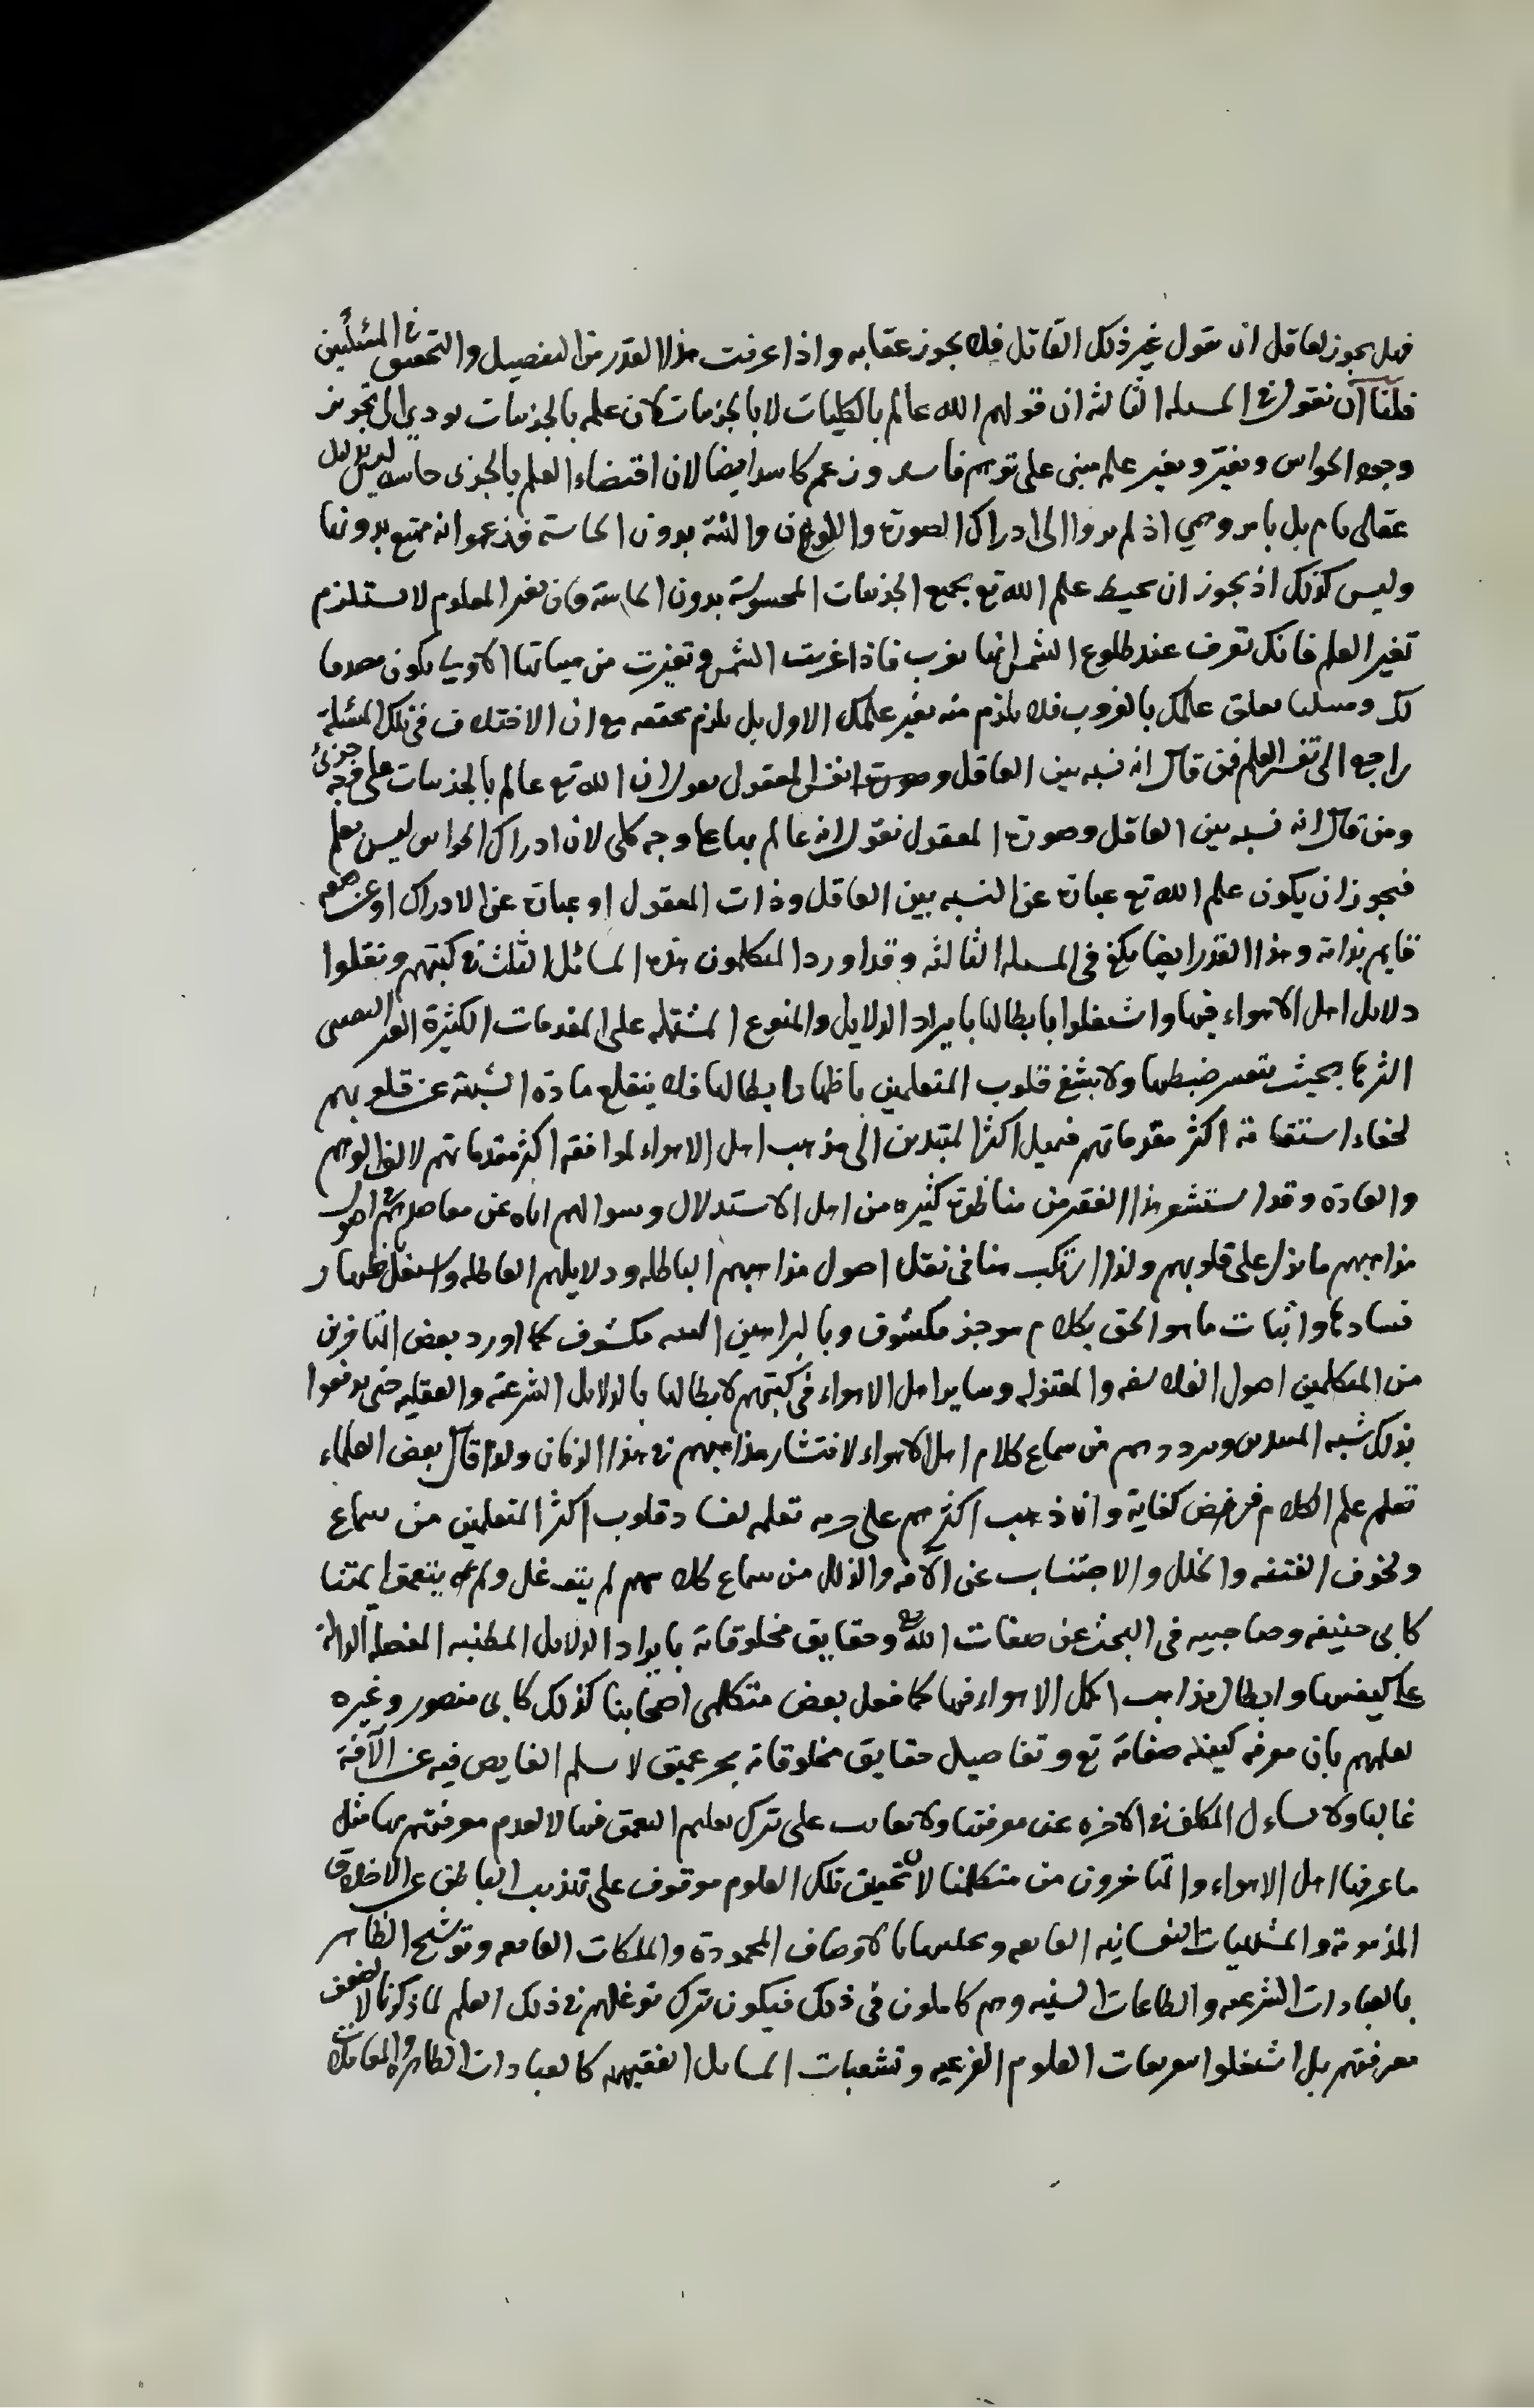 فهل يجوز لعاقل ان يقول غير ذلك القائل فلا يجوز عقابه واذا عرفت هذا القدر من التفصيل والتحقيق في المسئلتين
فلنا ان نقول في المسله الثالثه ان قولهم الله عالم بالكليات لا بالجزئيات لان علمه بالجزئيات يودي الى تجويز
وجود الحواس وتغيّر وتغير علمه مبنى على توهم فاسد وزعم كاسد ايضا لان اقتضاء العلم بالجزى حاسة ليس بدليل
عقلى تام بل بامر وهمي اذ لم يروا الى ادراك الصوت واللون والشئ بدون الحاسة فزعموا انه ممتنع بدونها
وليس كذلك اذ يجوز ان يحيط علم الله تع بجميع الجزئيات المحسوسة بدون الحاسة وان تغير المعلوم لا يستلزم
تغير العلم فانك تعرف عند طلوع الشمس انها تغرب فاذا غربت الشمس وتغيرت من هيأتها الاولى يكون معدوما
لك ومسلما تعلق علمك بالغروب فلا يلزم منه تغير علمك الاول بل يلزم تحققه مع ان الاختلاف في تلك المسئلة
راجع الى تفسير العلم فمن قال انه نسبه بين العاقل ونفس المعقول يقول ان الله تع عالم بالجزئيات على وجه جزئ
ومن قال انه نسبه بين العاقل وصورة المعقول نقول انه عالم بها على وجه كلى لان ادراك الحواس ليس بعلم
فيجوز ان يكون علم الله تع عبارة عن النسبه بين العاقل وذات المعقول او عبارة عن الادراك او عن صفه
قايم بذاته وهذا القدر ايضا يكفى في المسله الثالثه وقد اورد المتكلمون هذه المسائل الثلث في كتبهم ونقلوا
دلايل اهل الاهواء فيها واشتغلوا بابطالها بايراد الدلايل والمنوع المشتمله على المقدمات الكثيرة
اكثرها بحيث يتعسر ضبطها ولا يشفى قلوب المتعلمين باظهار ابطالها فلا ينقلع مادة الشبهة عن قلوبهم
لخفاء استقامة اكثر مقدماتهم فيميل اكثر المبتدين الى مذهب اهل الاهواء لموافقه اكثر مقدماتهم لالف الوهم
والعادة وقد استشعر هذا الفقير من مناظرة كثيره من اهل الاستدلال وسوالهم اياه عن مقاصدهم في اصول
مذاهبهم مانزل على قلوبهم ولذا ارتكب هنا في نقل اصول مذاهبهم الباطله ودلايلهم العاطله واشتغل باظهار
فسادها واثبات ما هو الحق بكلام موجز مكشوف وبالبراهين مكشوف كما اورد بعض المتاخرين
من المتكلمين اصول الفلاسفه والمعتزله وساير اهل الاهواء في كتبهم لابطالها بالدلايل الشرعية والعقليه حتى يدفعوا
بذلك شبه المبتدين وترددهم من سماع كلام اهل الاهواء لانتشار مذاهبهم في هذا الزمان ولذا قال بعض العلماء
تعلم علم الكلام فرض كفاية وان ذهب اكثرهم على حرمه تعلمه لفساد قلوب اكثر المتعلمين من سماع
ولخوف الفتنه والخلل والاجتناب عن الآفه والزلل من سماع كلامهم لم يتوغل ولم يتعمق ايمتنا
كابى حنيفه وصاحبيه في البحث عن صفات الله تع وحقايق مخلوقاته بايراد الدلايل المطنبه المفصله الدالة
على كيفيتها وابطال مذاهب اهل الاهواء فيها كما فعل بعض متكلمى اصحابنا كذلك كابى منصور وغيره
لعلمهم بان معرفه كيفيه صفاته تع وتفاصيل حقايق مخلوقاته بحر عميق لا يسلم الغايص فيه عن الآفة
غالبا ولا يساءل المكلف في الاخره عن معرفتها ولا يعاتب على ترك تعليم التعمق فيها لا لعدم معرفتهم بها مثل
ما عرفها اهل الاهواء والمتاخرون من متكلمنا لان تحقيق تلك العلوم موقوف على تهذيب الباطن عن الاخلاق
المذمومة والمشتهيات النفسانيه وتحليتها بالاوصاف المحمودة والملكات وتوشيح الظاهر
بالعبادات الشرعيه والطاعات السنيه وهم كاملون في ذلك فيكون ترك توغلهم في ذلك العلم لما ذكرنا لا لضعف
معرفتهم بل اشتغلوا العلوم الفرعيه وتشعبات المسايل الفقهيه كالعبادات الظاهره والمعاملات